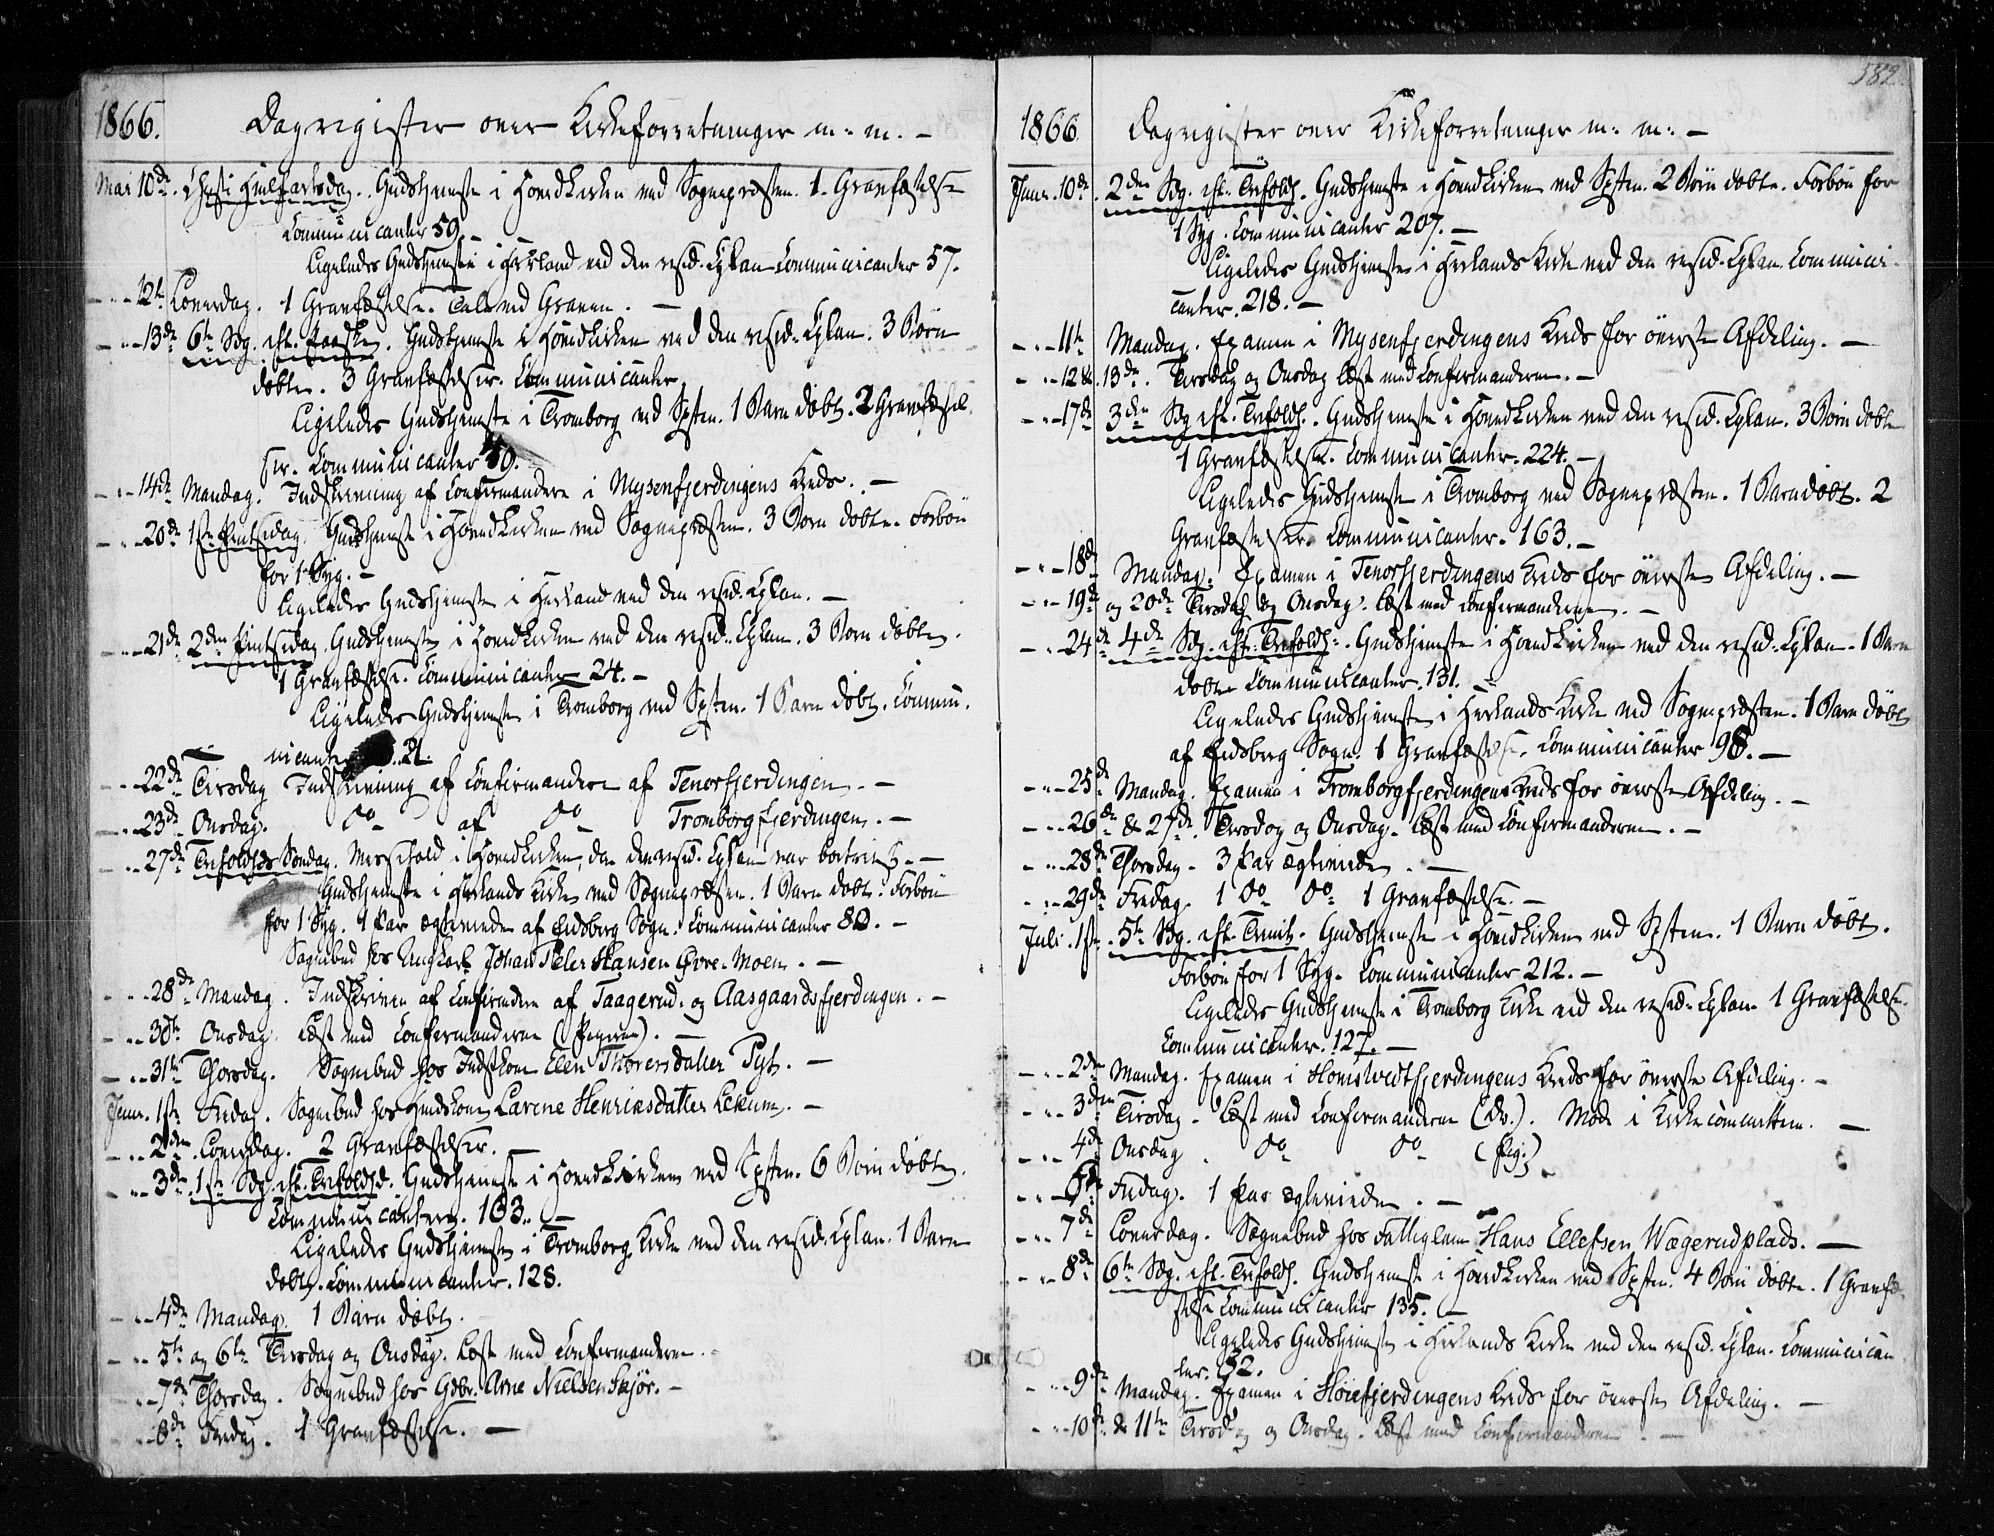 1866. Dagregister over Kirkeforretninger m: m: –
Mai 10de. Christi Himmelfartsdag. Gudstjeneste i Hovedkirken ved Sognepræsten. 1 Gravfæstelse
Communicanter 59. –
Ligeledes Gudstjeneste i Herland ved den resid. Cplan Communicanter 57.
– " – 12te Løverdag. 1 Gravfæstelse. Tale ved Graven. –
– " – 13de 6te Søg. eft. Paaske. Gudstjeneste i Hovedkirken ved den resid. Cplan. 3 Børn
døbte. 3 Gravfæstelser. Communicanter
Ligeledes Gudstjeneste i Tromborg ved Spsten. 1 Barn døbt. 2 Gravfæstel-
ser. Communicanter 49.
– " – 14de Mandag. Indskrivning af Confirmandere i Mysenfjerdingens Kreds. –
– " – 20de 1ste Pintsedag. Gudstjeneste i Hovedkirken ved Sognepræsten. 3 Børn døbte. Forbøn
for 1 Syg. –
Ligeledes Gudstjeneste i Herland ved den resid. Cplan. –
– " – 21de 2den Pintsedag. Gudstjeneste i Hovedkirken ved den resid. Cplan. 3 Børn døbte.
1 Gravfæstelse. Communicanter 24. –
Ligeledes Gudstjeneste i Tromborg ved Spsten. 1 Barn døbt. Commu-
nicanter 21.
– " – 22de Tirsdag Indskrivning af Confirmandere af Tenorfjerdingen. –
– " – 23de Onsdag. do af do Tromborgfjerdingen. –
– " – 27de Trefoldhds Søndag. Messefald i Hovedkirken, da den resid. Cplan var bortreist. –
Gudstjeneste i Herlands Kirke ved Sognepræsten. 1 Barn døbt. Forbøn
for 1 Syg. 1 Par ægteviede af Eidsberg Sogn. Communicanter 80. –
Sognebud hos Ungkarl Johan Peter Hansen Øvre-Moen. –
– " – 28de Mandag. Indskriven af Confirmandere af Taagerud- og Aasgaardsfjerdingen. –
– " – 30te Onsdag. Læst med Confirmanderne (Pigerne). –
– " – 31te Thorsdag. Sognebud hos Indstkone Ellen Thorersdatter Pyt. –
Juni. 1ste Fredag. Sognebud hos Huuskone Larine Henriksdatter Lekum. –
– " – 2den Løverdag. 2 Gravfæstelser.
– " – 3de 1ste Søg. eft. Trefoldhd. Gudstjeneste i Hovedkirken ved Spsten. 6 Børn døbte.
Communicanter. 103. –
Ligeledes Gudstjeneste i Tromborg Kirke ved den resid. Cplan. 1 Barn
døbt. Communicanter. 128.
– " – 4de Mandag. 1 Barn døbt.
– " – 5te og 6te Tirsdag og Onsdag. Læst med Confirmanderne.
– " – 7de Thorsdag. Sognebud hos Gdbr. Arne Nielsen Skjør. –
– " – 8de Fredag. 1 Gravfæstelse. –
582
1866 Dagregister over Kirkeforretninger m: m: –
Juni. 10de. 2den Søg. eft. Trefoldh. Gudstjeneste i Hovedkirken ved Spsten. 2 Børn døbte. Forbøn for
1 Syg. Communicanter 207. –
Ligeledes Gudstjeneste i Herlands Kirke ved den resid. Cplan. Communi-
canter. 218. –
– " – 11te Mandag. Examen i Mysenfjerdingens Kreds for øverste Afdeling. –
– " – 12 & 13de. Tirsdag og Onsdag læst med Confirmanderne. –
– " – 17de 3die Søg eft. Trefoldh. Gudstjeneste i Hovedkirken ved den resid. Cplan. 3 Børn døbte
1 Gravfæstelse. Communicanter. 224. –
Ligeledes Gudstjeneste i Tromborg ved Sognepræsten. 1 Barn døbt. 2
Gravfæstelser. Communicanter. 163. –
– " – 18de Mandag. Examen i Tenorfjerdingens Kreds for øverste Afdeling. –
– " – 19de og 20de Tirsdag og Onsdag. læst med Confirmanderne. –
– " – 24de 4de Søg. eft. Trefoldh. Gudstjeneste i Hovedkirken ved den resid. Cplan. 1 Barn
døbt Communicanter. 131. –
Ligeledes Gudstjeneste i Herlands Kirke ved Sognepræsten. 1 Barn døbt
af Eidsberg Sogn. 1 Gravfæstelse. Communicanter 98. –
– " – 25de Mandag. Examen i Tromborgfjerdingens Kreds for øverste Afdeling. –
– " – 26de & 27de. Tirsdag og Onsdag. Læst med Confirmanderne. –
– " – 28de Thorsdag. 3 Par ægteviede. –
– " – 29de Fredag. 1 do do 1 Gravfæstelse. –
Juli. 1ste. 5te Søg. eft. Trinit. Gudstjeneste i Hovedkirken ved Spsten. 1 Barn døbt.
Forbøn for 1 Syg. Communicanter 212. –
Ligeledes Gudstjeneste i Tromborg Kirke ved den resid. Cplan. 1 Gravfæstelse.
Communicanter. 127. –
– " – 2den Mandag. Examen i Homstvedtfjerdingens Kreds for øverste Afdeling. –
– " – 3die Tirsdag. Læst med Confirmanderne (Dr.). Møde i Kirkecommitteen. –
– " – 4de Onsdag. do do (Pig.)
– " – 6te Fredag. 1 Par ægteviede. –
– " – 7de Løverdag. Sognebud hos Fattiglem Hans Ellefsen Wægerudplads. –
– " – 8de 6te Søg. eft. Trefoldh. Gudstjeneste i Hovedkirken ved Spsten. 4 Børn døbte. 1 Gravfæ-
stelse Communicanter 135. –
Ligeledes Gudstjeneste i Herlands Kirke ved den resid. Cplan. Communican-
ter. 92.
– " – 9de Mandag. Examen i Høiefjerdingens Kreds for øverste Afdeling. –
– " – 10de & 11te Tirsdag og Onsdag. Læst med Confirmanderne. –